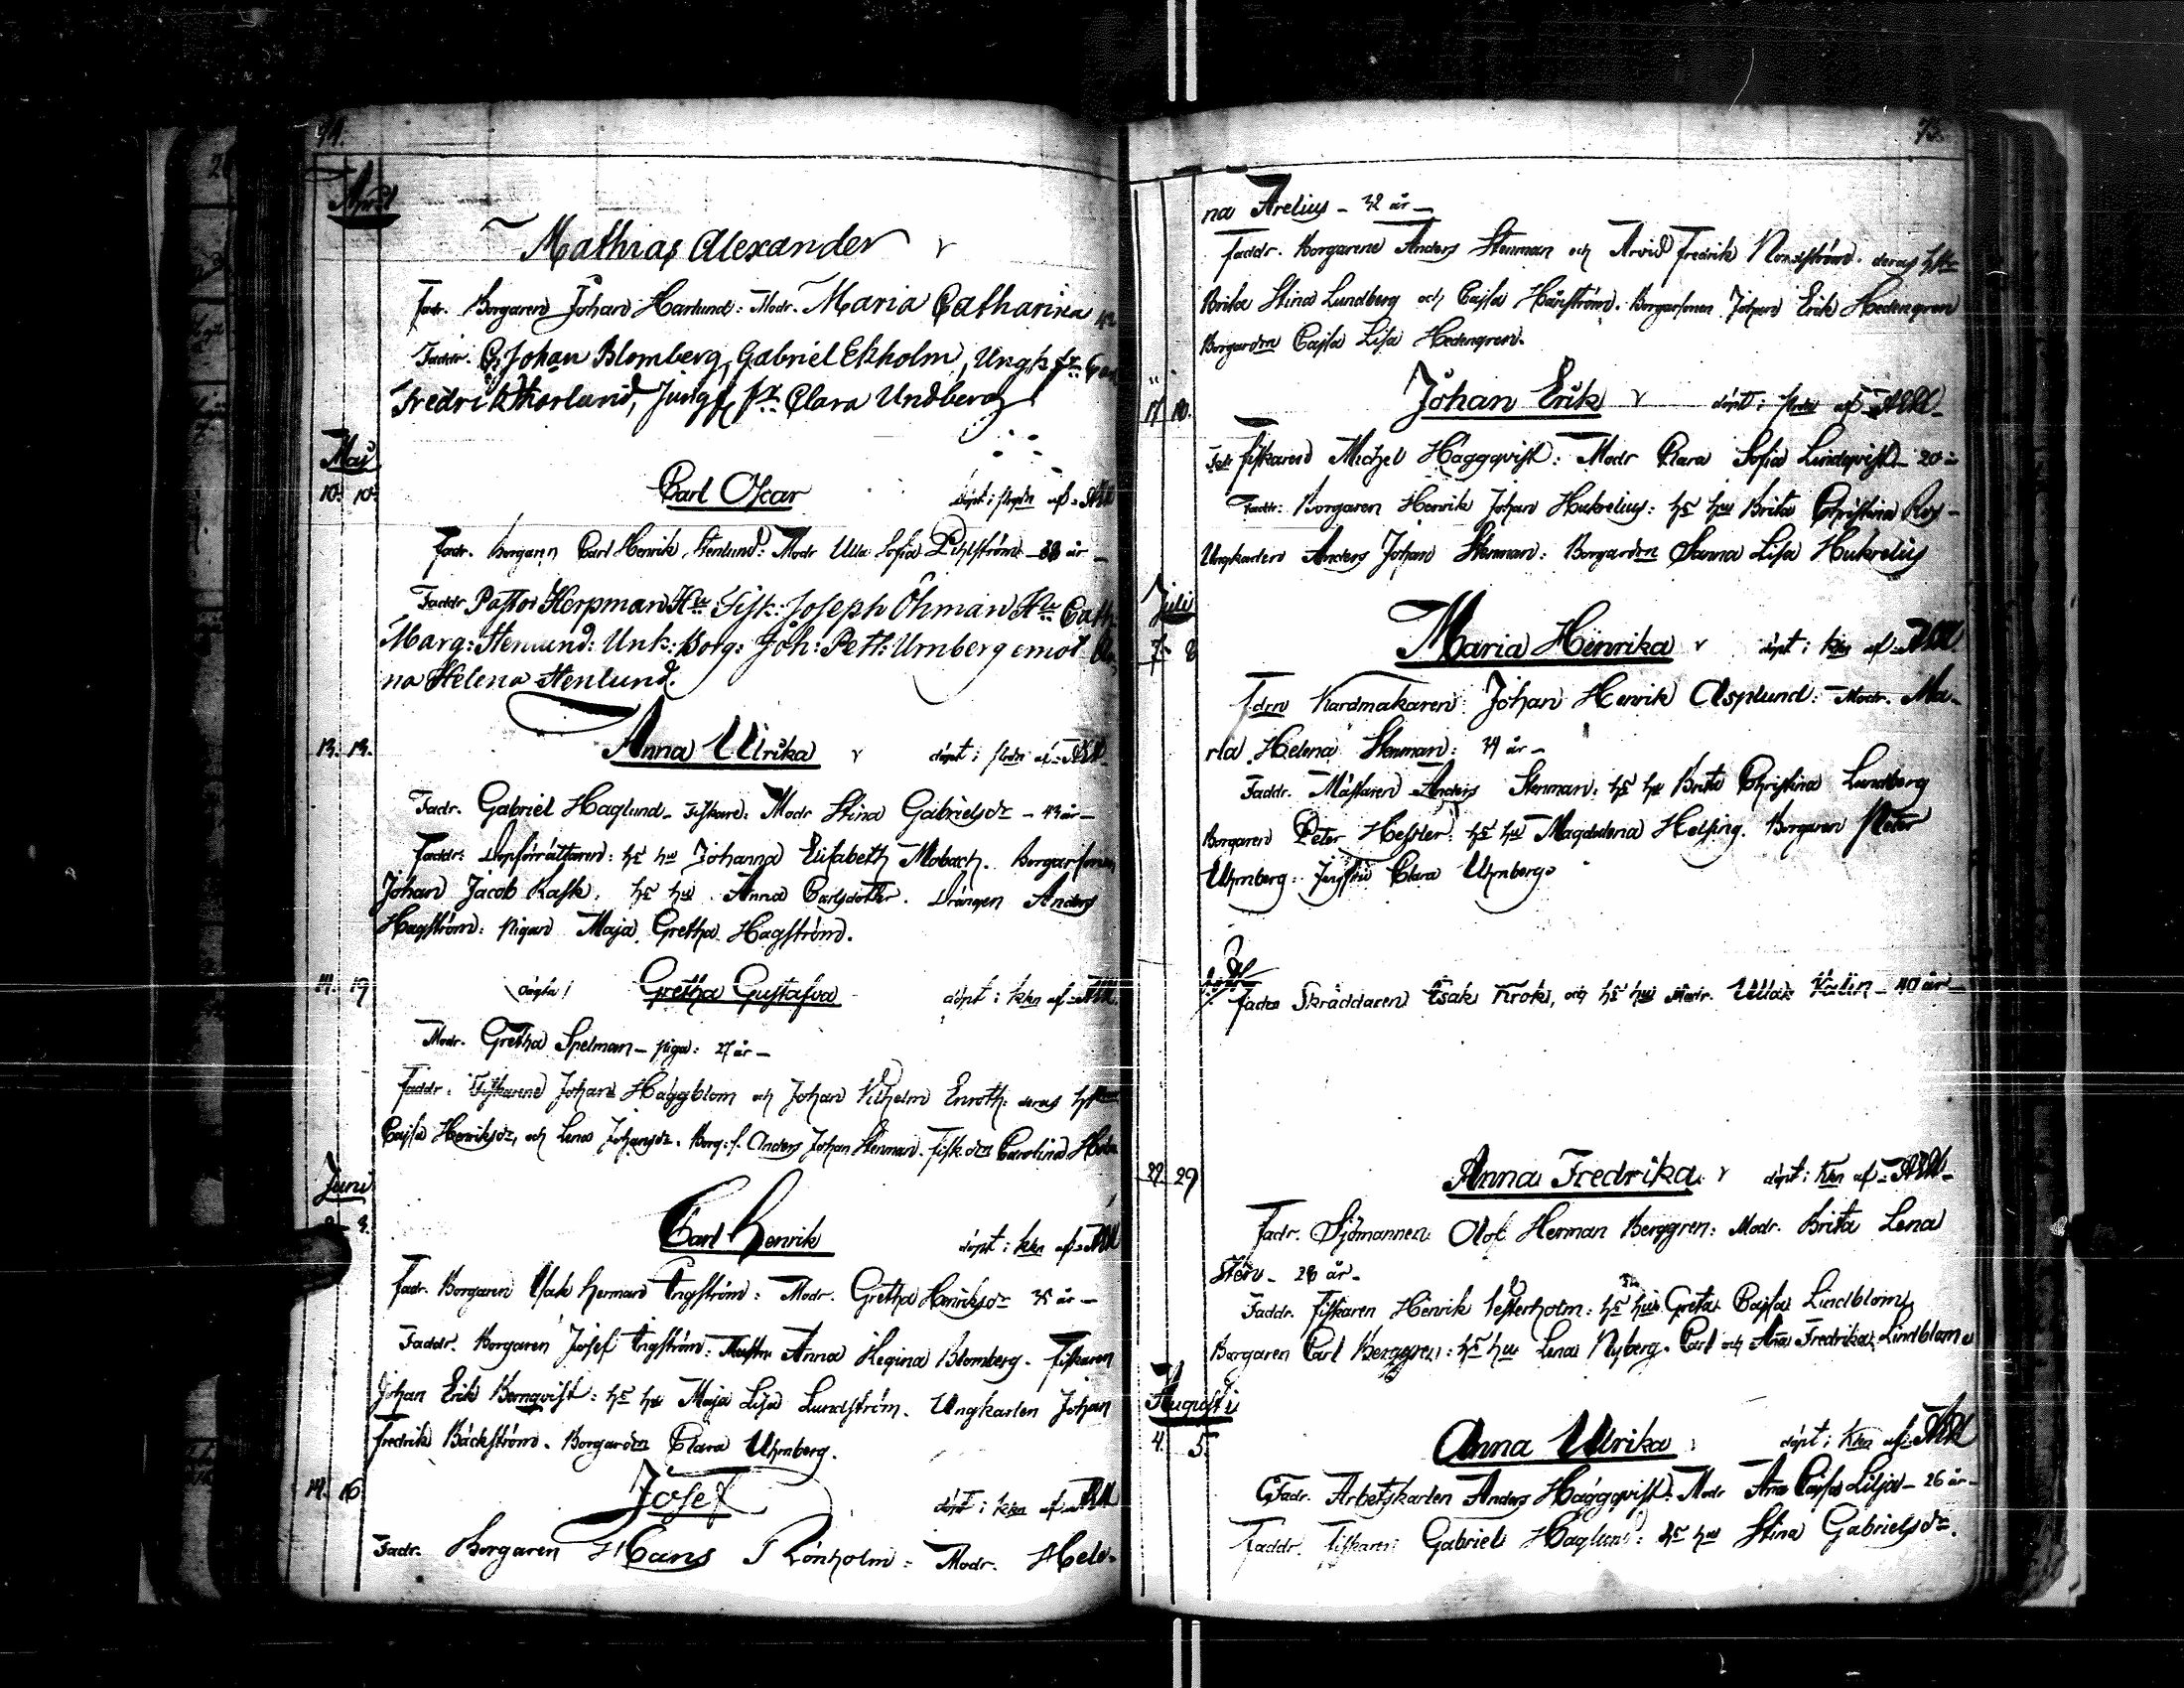 94.
April
Mathias Alexander
Fadr. Borgaren Johan Harlund: Modr. Maria Catharina
Faddr. Johan Blomberg, Gabriel Ekholm, Ungk
Fredrik Harlund, Jungf. Clara Undberg
Maj
10. 10. Carl Oscar döpt i af
Fadr. Borgaren Carl Henrik Stenlund: Modr Ulla Sofia Pihlström 38 år
Faddr Pastor Herpman Fisk: Joseph Öhman Cath:
Marg: Stenlund: Unk: Borg: Joh: Pett: Urnberg emot
na Helena Stenlund.
13. 13. Anna Ulrika döpt i af
Fadr. Gabriel Haglund fiskare: Modr Stina Gabrielsdr 43 år
Faddr: Dopförrättaren: hs hu Johanna Elisabeth Mobach. Borgarsonen
Johan Jacob Rask: hs hu Anna Carlsdotter. Drängen Anders
Hagström: pigan Maja Gretha Hagström.
14. 19 oägta! Gretha Gustafva döpt i kkn af
Modr. Gretha Spelman piga: 27 år
Faddr. Fiskarene Johan Häggblom och Johan Vilhelm Enroth: deras
Cajsa Henriksdr, och Lena Johansdr. Borg: s. Anders Johan Stenman. Fisk Carolina
Juni
9. Carl Henrik döpt i kkn af
Fadr. Borgaren Isak Herman Engström: Modr. Gretha Henriksdr 35 år
Faddr. Borgaren Josef Engström: Anna Regina Blomberg. Fiskaren
Johan Erik Bernqvist: hs hu Maja Lisa Lundström. Ungkarlen Johan
Fredrik Bäckström. Borgardn Clara Uhrnberg.
14. 16 Josef döpt i kkn af
Fadr. Borgaren Hans Rönholm: Modr. Hele-
na Arelius 32 år
Faddr. Borgarene Anders Stenman och Arvid Fredrik Nordström. deras
Brita Stina Lundberg och Cajsa Hårström. Borgarsonen Johan Erik Hedengren
Borgardn Cajsa Lisa Hedengren.
17 18. Johan Erik döpt i af
Fiskaren Michel Häggqvist: Modr Clara Sofia Lindqvist 20
Faddr: Borgaren Henrik Johan Hukrelius: hs hu Brita Christina
Ungkarlen Anders Johan Stenman: Borgardn Sanna Lisa Hukrelius
Juli
7. 8 Maria Henrika döpt i kkn af
Fadrn Kardmakaren Johan Henrik Asplund: Modr. Ma-
ria Helena Stenman: 39 år
Faddr. Mästaren Anders Stenman: hs hu Brita Christina Lundberg
Borgaren Peter Hessler: hs hu Magdalena Helsing. Borgaren Peter
Uhrnberg: Jungfru Clara Uhrnberg
Fadren Skräddaren Isak Krok, och hs hu Modr. Ulla 40 år
29 Anna Fredrika döpt i Kkn af
Fadr. Sjömannen Olof Herman Berggren: Modr. Brita Lena
28 år
Faddr. Fiskaren Henrik Vesterholm: hs hu Greta Cajsa Lindblom
Borgaren Carl Berggren: hs hu Lena Nyberg. Carl och Ana Fredrika Lindblom
Augusti
4. 5. Anna Ulrika döpt i Kkn af
Fadr. Arbetskarlen Anders Häggqvist: Modr Ana Cajsa Lilja 26 år
Faddr. Fiskaren Gabriel Haglund: hs hu Stina Gabrielsdr.